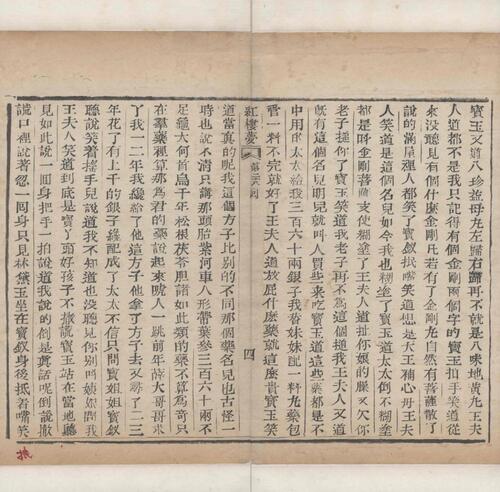 寶玉又道八珍益母丸左歸右歸再不八味地黃丸王夫
人道都不是我只記得有個金剛兩個字的寶玉拍手笑道從
來沒聽見有個什麽金剛丸若有了金剛丸自然有菩薩散了
說的滿屋裡人都笑了寶釵抿嘴笑道想是天王補心丹王夫
人笑道是這個名兒如今我也糊塗了寶玉道太太倒不糊塗
都是呌金剛菩薩支使糊塗了王夫人道扯你娘的臊又欠你
老子搥你了寶玉笑道我老子再不爲這個搥我王夫人又道
旣有這個名兒明兒就呌人買些來吃寶玉道這些藥都是不
中用的太太給我三百六十兩銀子我替妹妹配一料丸藥包
管一料不完就好了王夫人道放屁什麽藥就這麽貴寶玉笑
紅樓夢 第二十八囘 四
道當真的呢我這個方子比別的不同那個藥名兒也古怪一
時也說不清只講那頭胎紫河車人形帶葉參三百六十兩不
足龜大何首烏千年松根茯苓胆諸如此類的藥不算爲奇只
在羣藥裡算那爲君的藥說起來唬人一跳前年薛大哥哥求
了我一二年我纔給了他這方子他拿了方子去又尋了二三
年花了有上千的銀子纔配成了太太不信只問寶姐姐寶釵
聽說笑着搖手兒說道我不知道也沒聽見你別呌姨娘問我
王夫人笑道到底是寶丫頭好孩子不撒謊寶玉站在當地聽
見如此說一囬身把手一拍說道我說的倒是真話呢倒說撒
謊口裡說着忽一囬身只見林黛玉坐在寶釵身後抿着嘴笑